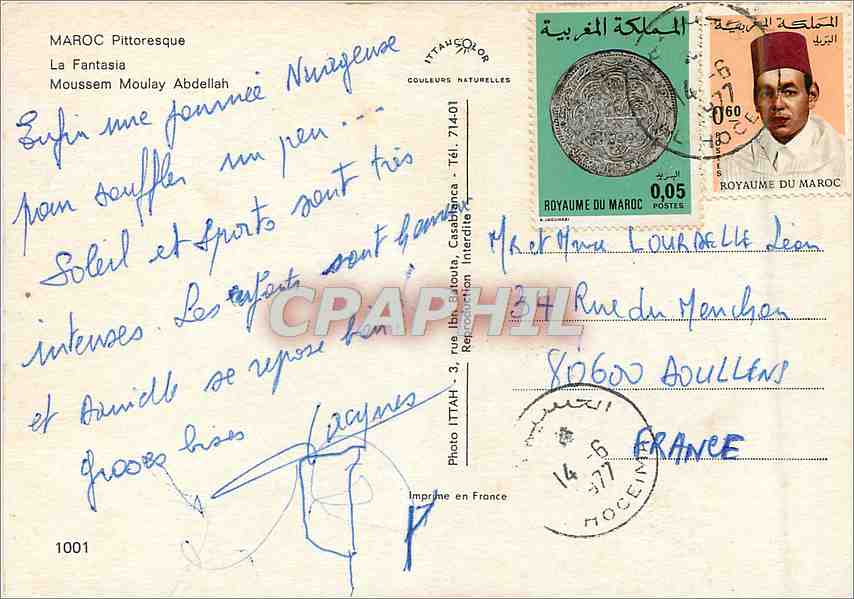 MAROC Pittoresque
La Fantasia
Moussem Moulay Abdellah
ITTAHCOLOR
COULEURS NATURELLES
Enfin une journée Nuageuse
pour souffler un peu...
Soleil et Sports sont très
intenses. Les enfants sont
et Danielle se repose bien!
Grosses bises
Jacques
Photo ITTAH - 3, rue Ibn Batouta, Casablanca - Tél. 714-01
Reproduction Interdite
Imprimé en France
1001
المملكة المغربية
البريد
0,05
ROYAUME DU MAROC
POSTES
المملكة المغربية
البريد
0.60
POSTES
ROYAUME DU MAROC
14 -6
1977
AL HOCEIMA
Mr et Mme LOURDELLE Léon
34 Rue du Menchon
80600 DOULLENS
FRANCE
الحسيمة
14 -6
1977
HOCEIMA
CPAPHIL